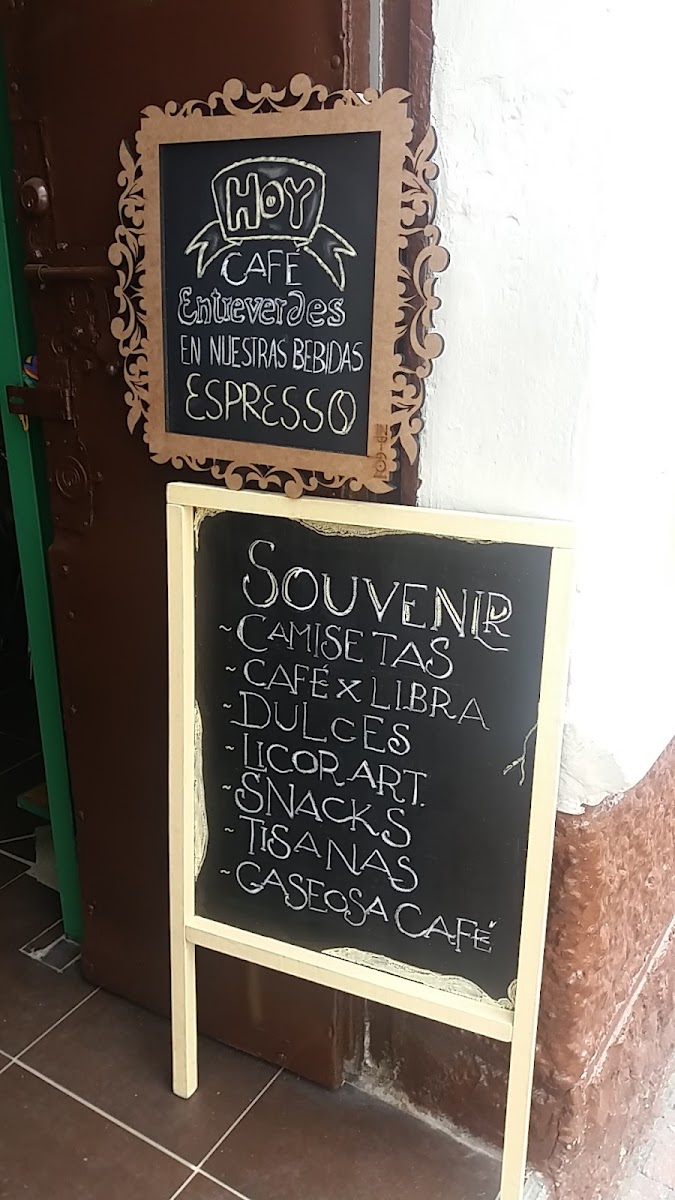 HOY
CAFÉ
Entreverdes
EN NUESTRAS BEBIDAS
ESPRESSO
SOUVENIR
~CAMISETAS
~CAFÉ X LIBRA
~DULCES
~LICOR ART.
~SNACKS
~TISANAS
~GASEOSA CAFÉ